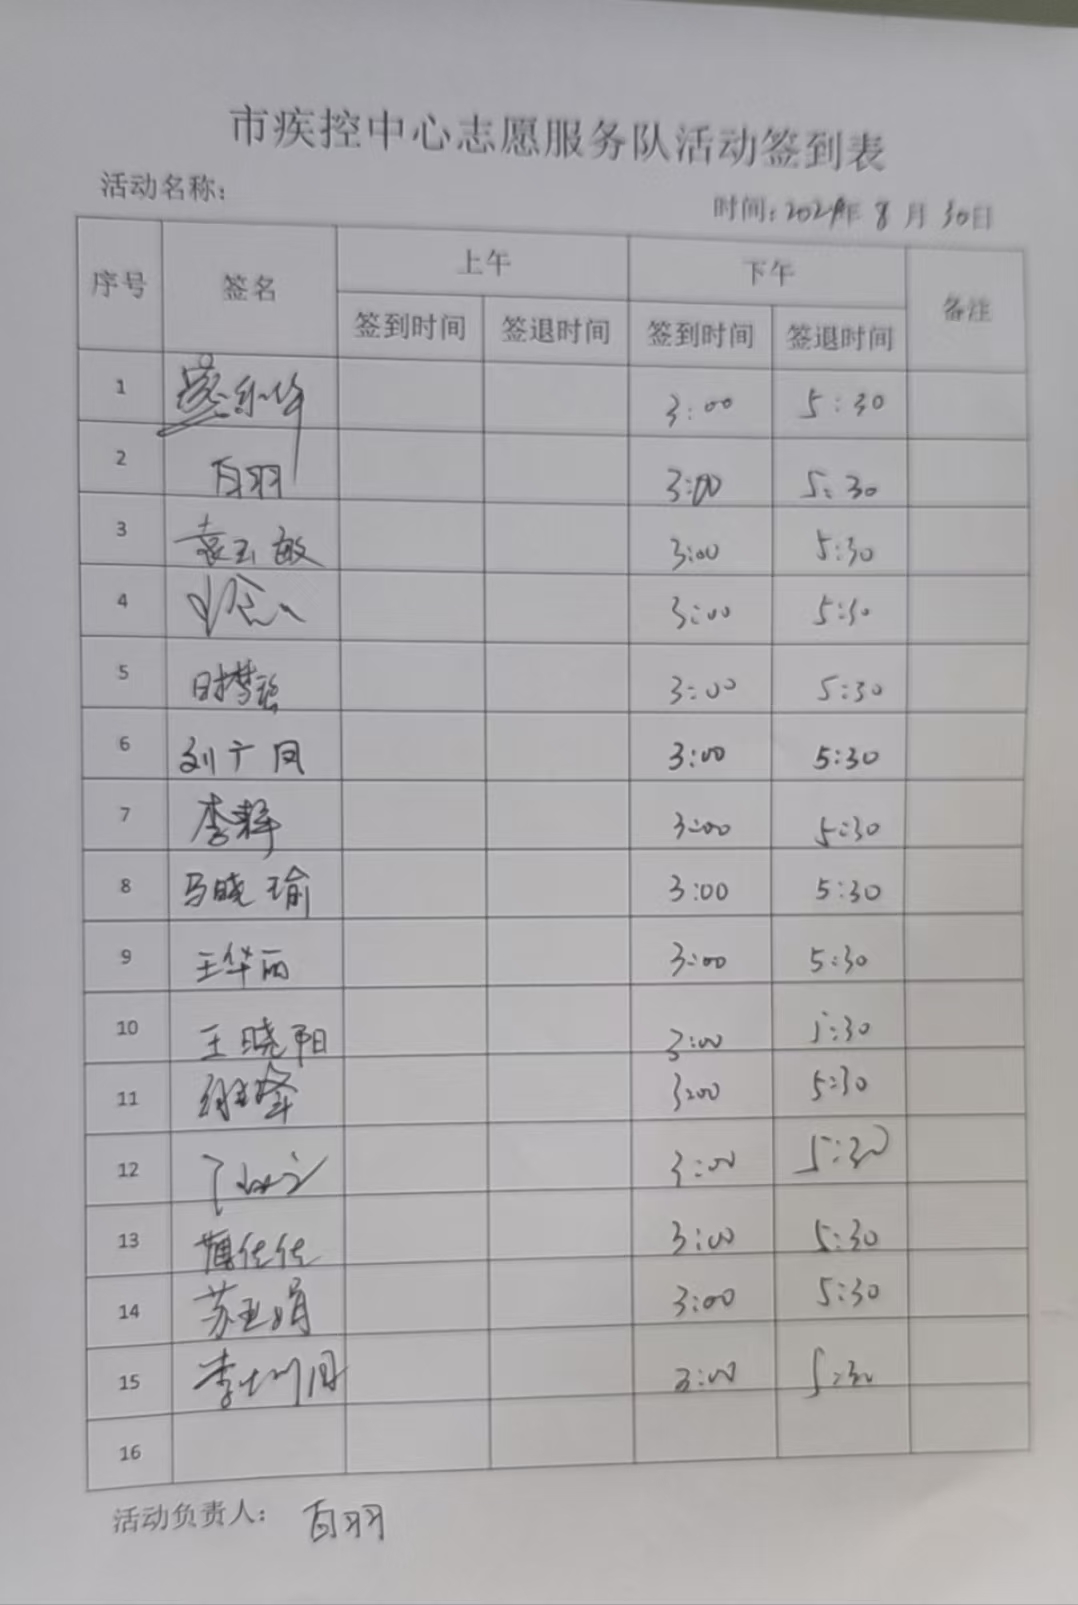 市疾控中心志愿服务队活动签到表
活动名称: 时间:2024年 8 月 30日
序号 签名 上午 下午 备注
签到时间 签退时间 签到时间 签退时间
1 3:00 5:30
2 白羽 3:00 5:30
3 袁玉敏 3:00 5:30
4 3:00 5:30
5 3:00 5:30
6 刘广凤 3:00 5:30
7 3:00 5:30
8 马晓瑜 3:00 5:30
9 王华丽 3:00 5:30
10 王晓阳 3:00 5:30
11 3:00 5:30
12 3:00 5:30
13 3:00 5:30
14 苏亚娟 3:00 5:30
15 3:00 5:30
16
活动负责人: 白羽